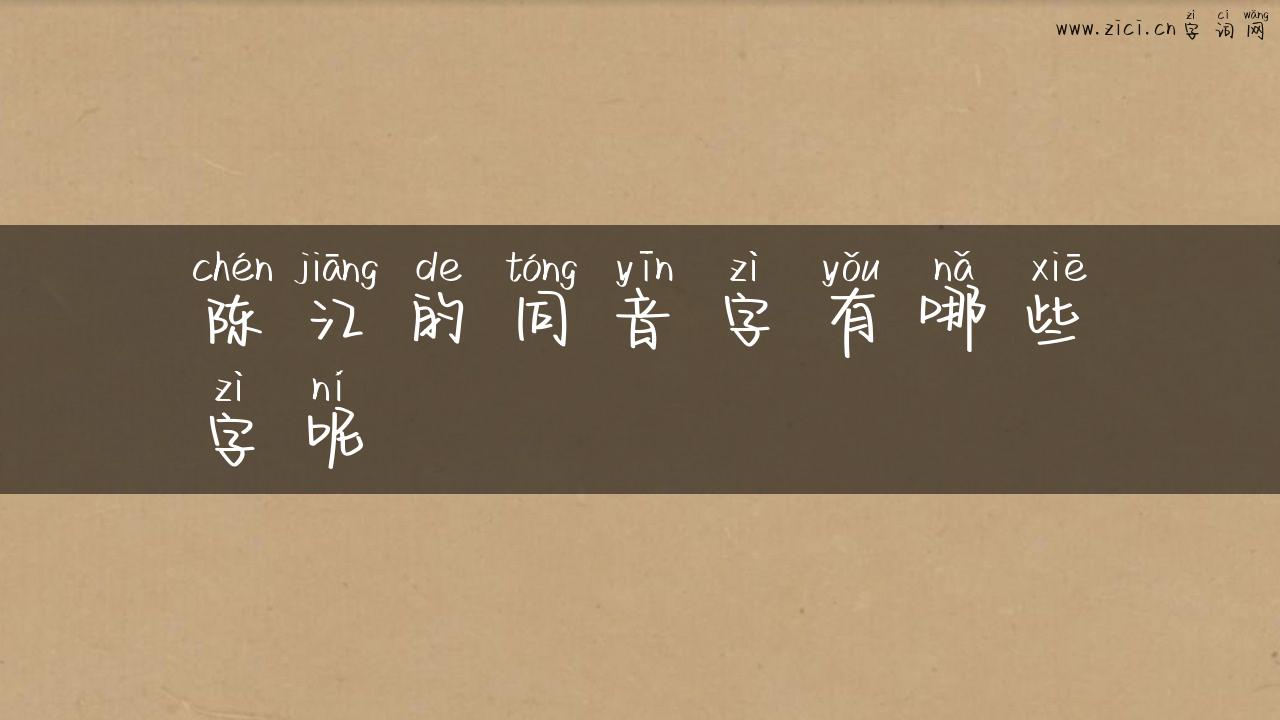 www.zici.cn 字词网
zì cí wǎng
chén jiāng de tóng yīn zì yǒu nǎ xiē
陈江的同音字有哪些
zì ní
字呢